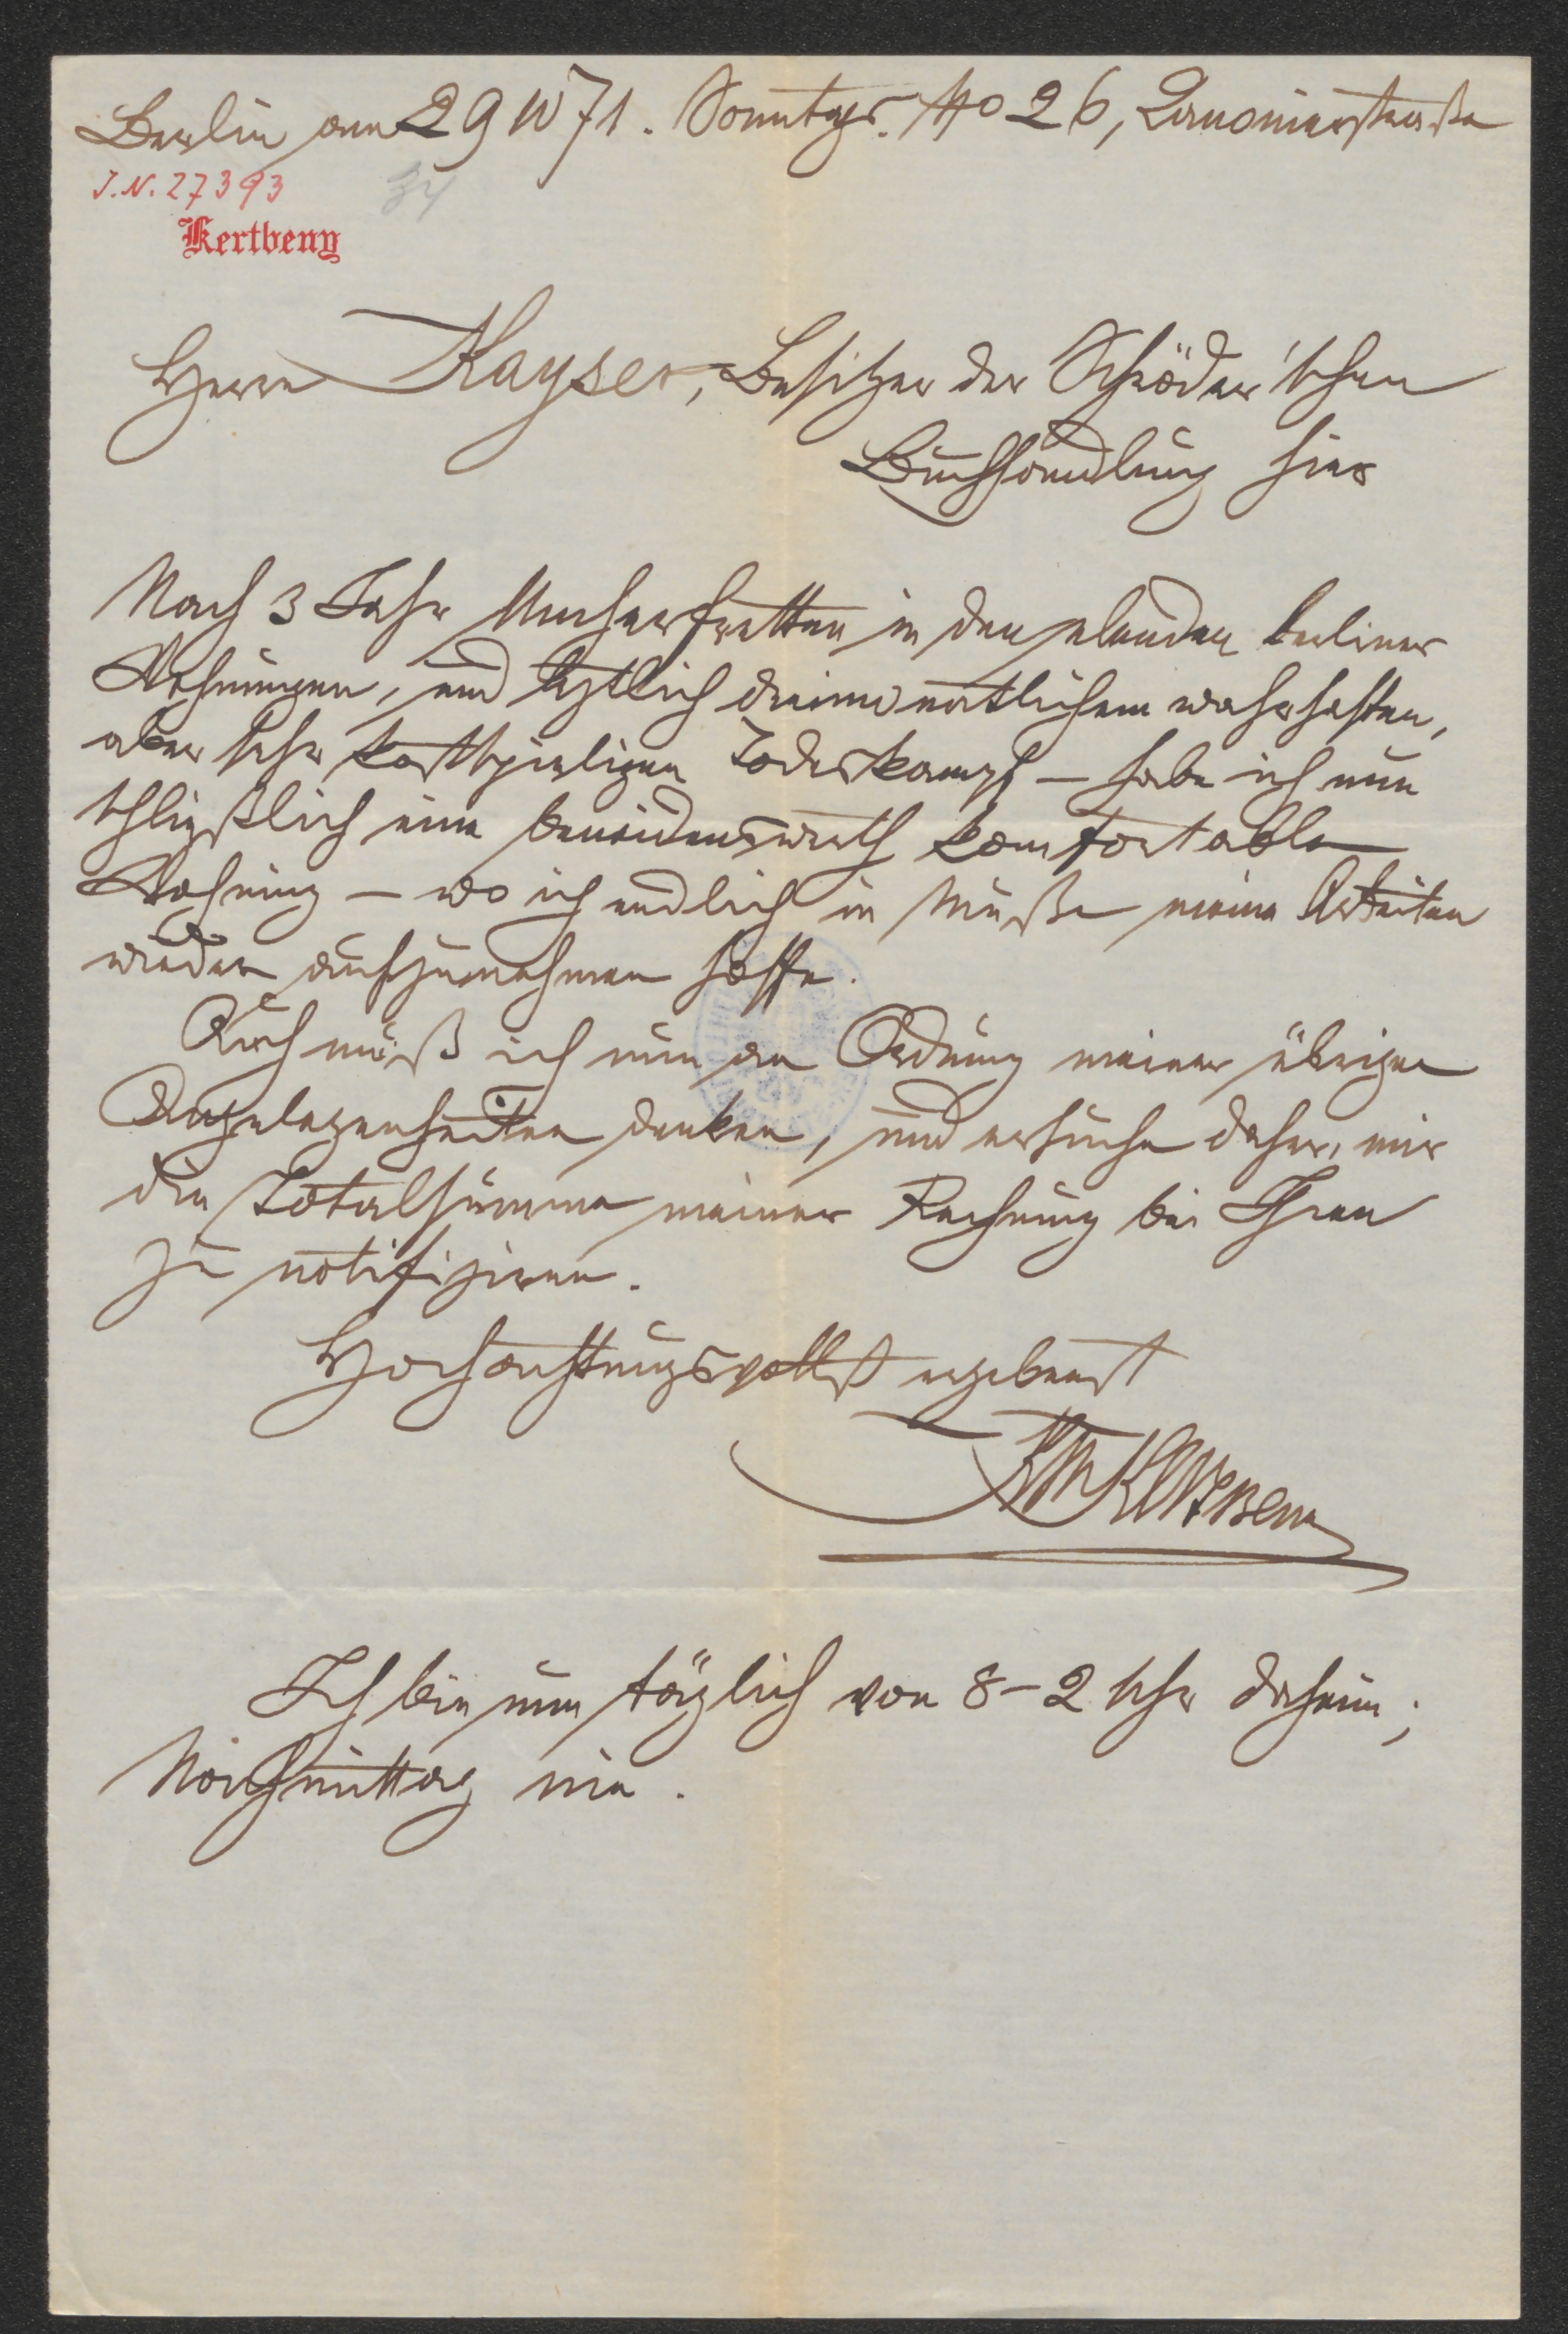 Berlin am 29 10 71. Sonntags. No 26, Kanonierstraße
J.N. 27393 34
Kertbeny
Herrn Kayser, Besitzer der Schröder'schen
Buchhandlung hier
Nach 3 Jahr Umherfretten in den elenden berliner
Wohnungen, und letztlich dreimonatlichem wahrhaften,
aber sehr kostspieligen Todeskampf – habe ich nun
schließlich eine beneidenswerth komfortable
Wohnung – wo ich endlich in Muße meine Arbeiten
wieder aufzunehmen hoffe.
Auch muß ich nun an Ordnung meiner übrigen
Angelegenheiten denken, und ersuche daher, mir
die Totalsumme meiner Rechnung bei Ihnen
zu notifiziren.
Hochachtungsvollst ergebenst
KMKertbeny
Ich bin nun täglich von 8–2 Uhr daheim;
Nachmittag nie.